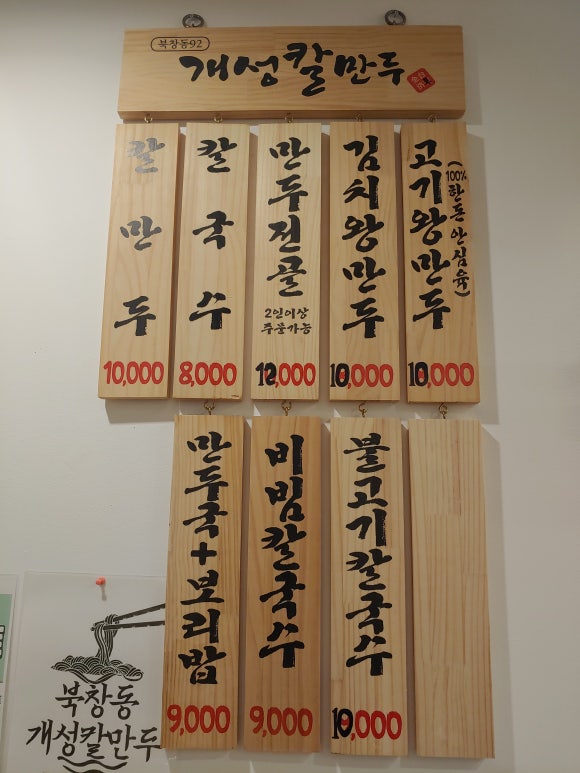 북창동92
개성칼만두
칼만두
10,000
칼국수
8,000
만두전골
2인이상
주문가능
12,000
김치왕만두
10,000
고기왕만두
(100% 한돈 안심육)
10,000
만두국+보리밥
9,000
비빔칼국수
9,000
불고기칼국수
10,000
북창동
개성칼만두